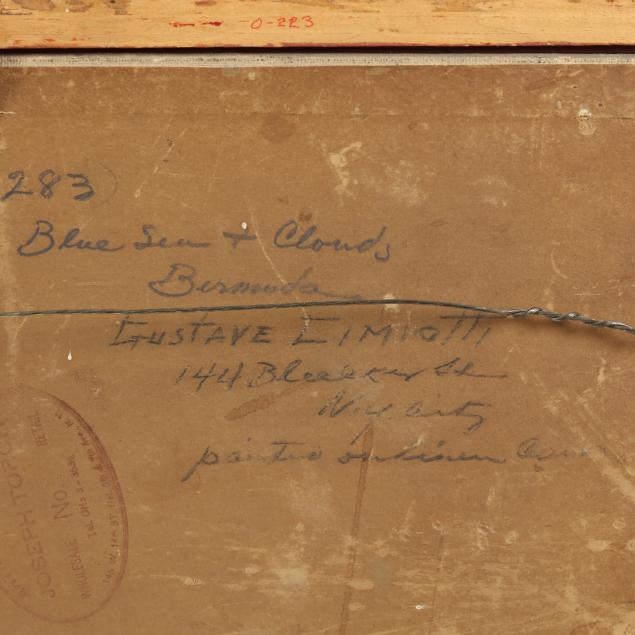 0-223
283)
Blue Sea + Clouds
Bermuda
GUSTAVE CIMIOTTI
144 Bleecker St
N.Y. City
painted on linen
JOSEPH TORCH
RETAIL
WHOLESALE NO.